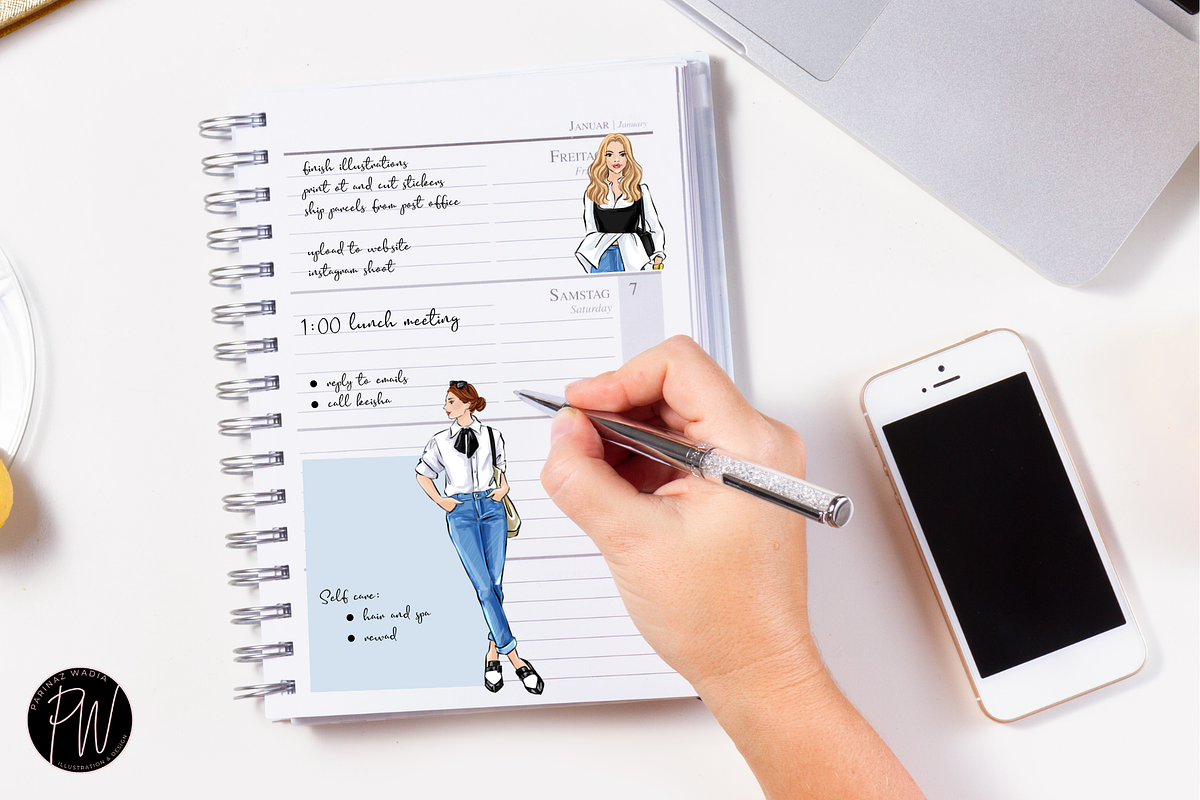 JANUAR | January
FREITAG
finish illustrations
print ot and cut stickers
ship parcels from post office
upload to website
instagram shoot
SAMSTAG 7
Saturday
1:00 lunch meeting
● reply to emails
● call keisha
Self care:
● hair and spa
● rewad
PARINAZ WADIA
PW
ILLUSTRATION & DESIGN